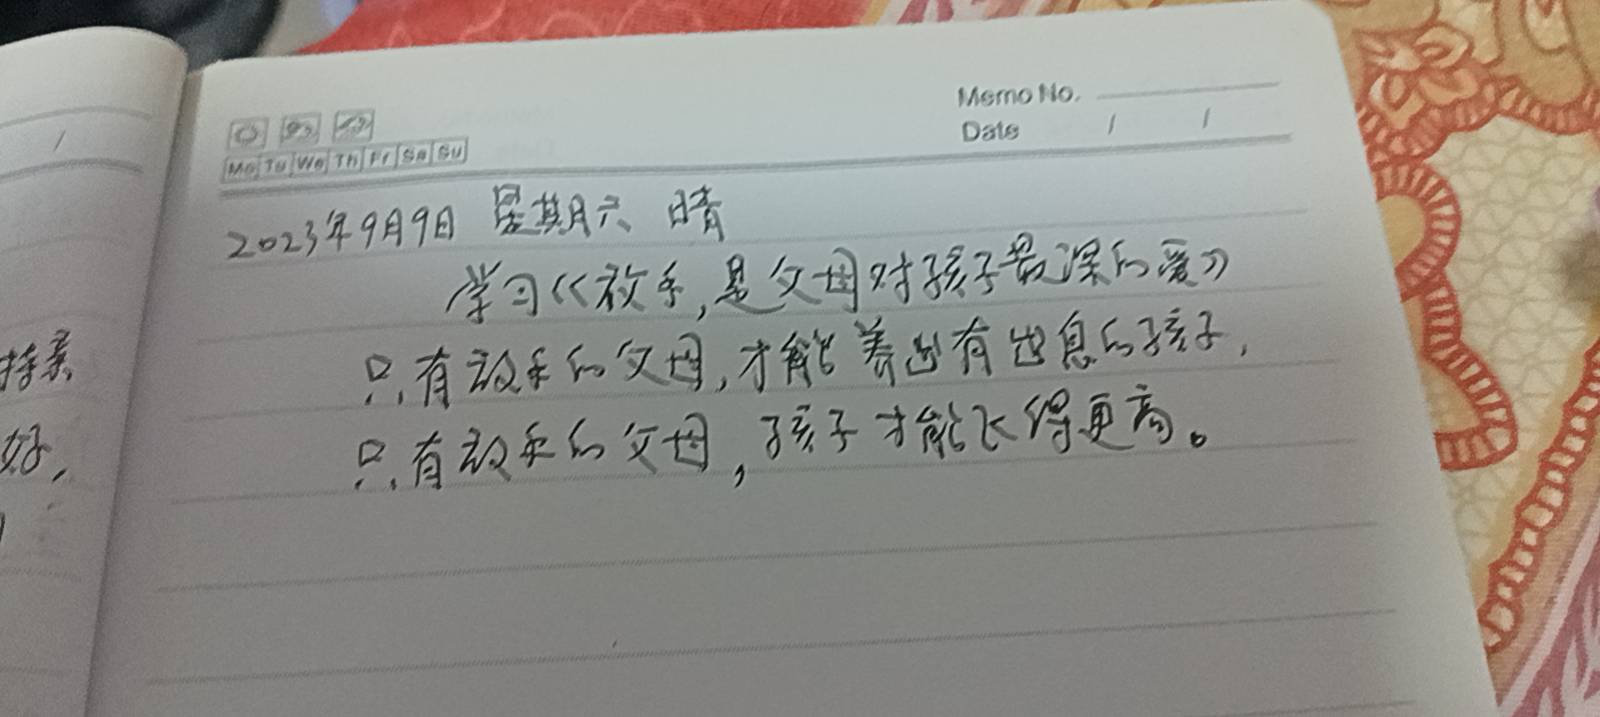 Memo No.
Date / /
Mo Tu We Th Fr Sa Su
2023年9月9日 星期六 晴
学习《放手,是父母对孩子最深的爱》
只有放手的父母,才能养出有出息的孩子,
只有放手的父母,孩子才能飞得更高。
/
好,